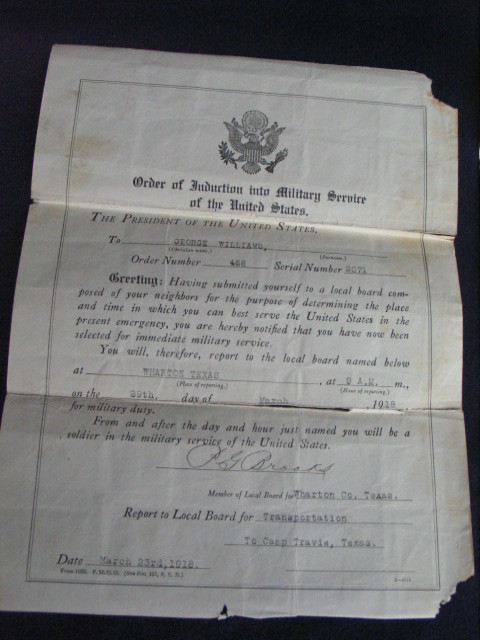 Order of Induction into Military Service
of the United States.
THE PRESIDENT OF THE UNITED STATES,
To GEORGE WILLIAMS,
(Christian name.) (Surname.)
Order Number 468 Serial Number 2071
Greeting: Having submitted yourself to a local board com-
posed of your neighbors for the purpose of determining the place
and time in which you can best serve the United States in the
present emergency, you are hereby notified that you have now been
selected for immediate military service.
You will, therefore, report to the local board named below
at WHARTON TEXAS, at 9 A.M. m.,
(Place of reporting.) (Hour of reporting.)
on the 29th. day of March, 1918,
for military duty.
From and after the day and hour just named you will be a
soldier in the military service of the United States.
Brooks
Member of Local Board for Wharton Co. Texas.
Report to Local Board for Transportation
To Camp Travis, Texas.
Date March 23rd, 1918.
Form 1028. P.M.G.O.